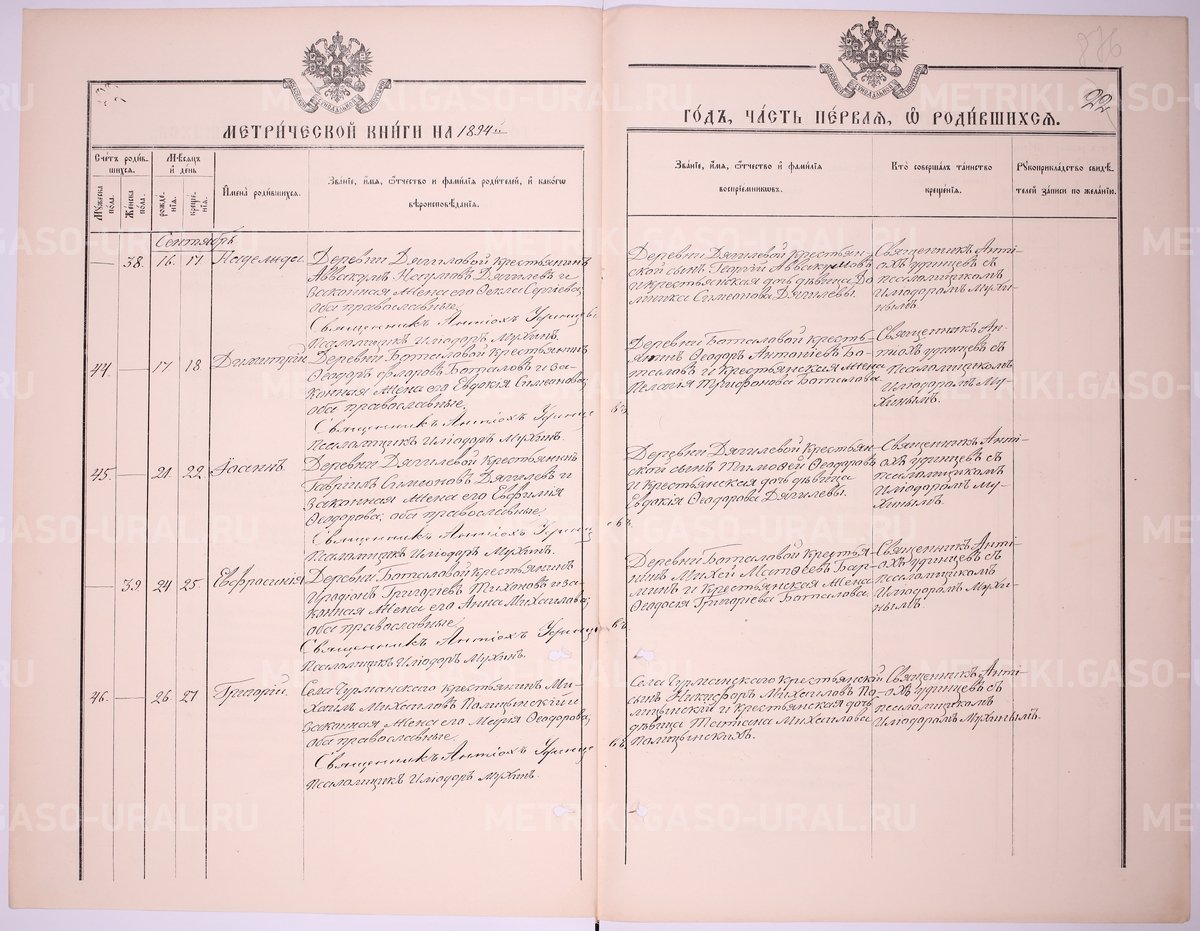 876
22
МЕТРИ́ЧЕСКОЙ КНИ́ГИ НА 1894й
ГО́ДЪ, ЧА́СТЬ ПЕ́РВАѦ, Ѡ҆ РОДИ́ВШИХСѦ.
Сче́тъ роди́в-
шихсѧ.
Мѣ́сѧцъ
и҆ де́нь
Мꙋ́жеска
по́ла.
Же́нска
по́ла.
рожде́-
нїѧ.
креще́-
нїѧ.
И҆мена̀ роди́вшихсѧ.
Зва́нїе, и҆́мѧ, ѻ҆́тчество и҆ фами́лїѧ роди́телей, и҆ како́гѡ
вѣроисповѣ́данїѧ.
Зва́нїе, и҆́мѧ, ѻ҆́тчество и҆ фами́лїѧ
воспрїе́мниковъ.
Кто̀ соверша́лъ та́инство
креще́нїѧ.
Рꙋкоприкла́дство свидѣ́-
телей за́писи по жела́нїю.
Сентябрь
— 38. 16. 17
Деревни Дягилевой крестьянинъ
Аввакумъ Наумовъ Дягилевъ и
законная жена его Фекла Сергiева,
оба православные.
Священникъ Антiохъ Удинцевъ
Псаломщикъ Илiодоръ Мухинъ.
Деревни Дягилевой крестьян-
ской сынъ Георгiй Аввакумовъ
и крестьянская дочь дѣвица До
мника Симеонова Дягилевы.
Священникъ Антi-
охъ Удинцевъ съ
псаломщикомъ
Илiодоромъ Мухи-
нымъ
44. — 17 18 Димитрiй.
Деревни Боталовой крестьянинъ
Феодоръ Флоровъ Боталовъ и за-
конная жена его Евдокiя Симеонова,
оба православные.
Священникъ Антiохъ Удинцевъ
Псаломщикъ Илiодоръ Мухинъ.
Деревни Боталовой кресть-
янинъ Феодоръ Антонiевъ Бо-
таловъ и крестьянская жена
Пелагiя Трифонова Боталова.
Священникъ Ан-
тiохъ Удинцевъ съ
псаломщикомъ
Илiодоромъ Му-
хинымъ.
45. — 21. 22.
Деревни Дягилевой крестьянинъ
Гаврiилъ Симеоновъ Дягилевъ и
законная жена его Евфимiя
Феодорова, оба православные.
Священникъ Антiохъ Удинцевъ
Псаломщикъ Илiодоръ Мухинъ.
Деревни Дягилевой крестьян-
ской сынъ Тимофей Феодоровъ
и крестьянская дочь дѣвица
Евдокiя Феодорова Дягилевы.
Священникъ Антi-
охъ Удинцевъ съ
псаломщикомъ
Илiодоромъ Му-
хинымъ.
— 39. 24 25. Евфросинiя
Деревни Боталовой крестьянинъ
Иродiонъ Григорiевъ Тихоновъ и за-
конная жена его Анна Михаилова,
оба православные.
Священникъ Антiохъ Удинцевъ
Псаломщикъ Илiодоръ Мухинъ.
Деревни Боталовой крестья-
нинъ Михей Матфеевъ Бар-
минъ и крестьянская жена
Феодосiя Григорiева Боталова.
Священникъ Антi-
охъ Удинцевъ съ
псаломщикомъ
Илiодоромъ Мухи-
нымъ
46. — 26. 27 Григорiй.
Села Чурманскаго крестьянинъ Ми-
хаилъ Михаиловъ Палицынскiй и
законная жена его Марiя Феодорова,
оба православные.
Священникъ Антiохъ Удинцевъ
Псаломщикъ Илiодоръ Мухинъ.
Села Чурманскаго крестьянской
сынъ Никифоръ Михаиловъ Па-
лицынскiй и крестьянская дочь
дѣвица Татiана Михаилова
Палицынскихъ.
Священникъ Антi-
охъ Удинцевъ съ
псаломщикомъ
Илiодоромъ Мухинымъ.
METRIKI.GASO-URAL.RU